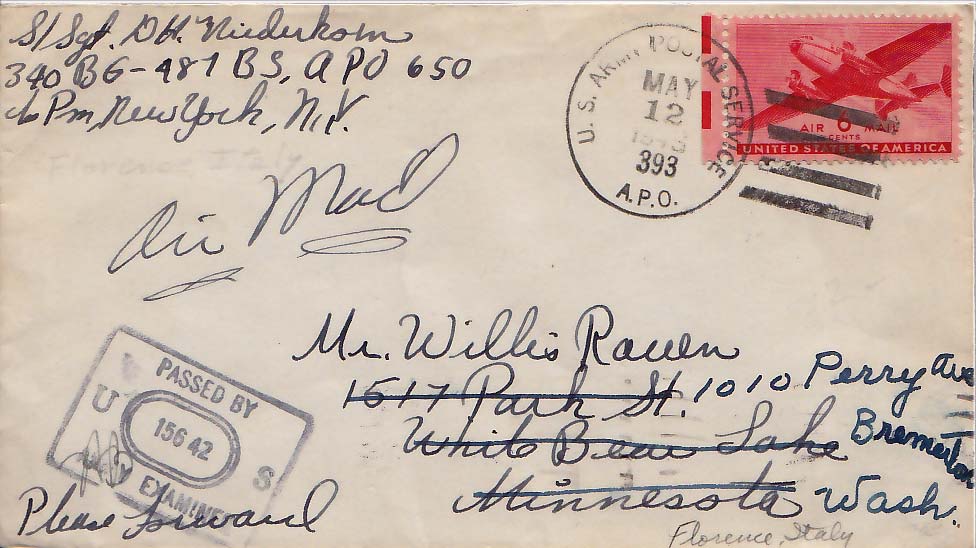 S/Sgt. D.H. Niederkorn
340 BG-487 BS, APO 650
c/o Pm, New York, N.Y.
Florence Italy
Air Mail
U.S. ARMY POSTAL SERVICE
MAY
12
393
A.P.O.
AIR 6 MAIL
CENTS
UNITED STATES OF AMERICA
Mr. Willis Rauen
1517 Park St. 1010 Perry Ave
White Bear Lake Bremerton
Minnesota Wash.
PASSED BY
U 15642 S
EXAMINER
Please forward
Florence, Italy